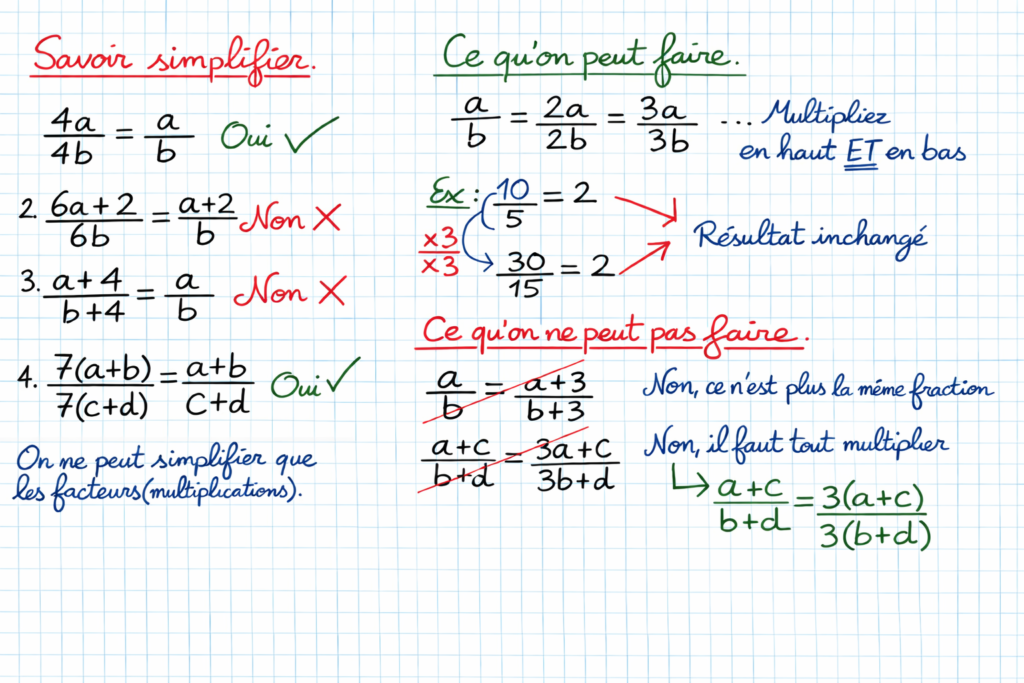 Savoir simplifier.
4a/4b = a/b Oui ✓
2. 6a+2/6b = a+2/b Non ✗
3. a+4/b+4 = a/b Non ✗
4. 7(a+b)/7(c+d) = a+b/C+d Oui ✓
On ne peut simplifier que
les facteurs (multiplications).
Ce qu'on peut faire.
a/b = 2a/2b = 3a/3b ... Multipliez
en haut ET en bas
Ex : 10/5 = 2
×3/×3
30/15 = 2
Résultat inchangé
Ce qu'on ne peut pas faire.
a/b = a+3/b+3 Non, ce n'est plus la même fraction
a+c/b+d = 3a+c/3b+d Non, il faut tout multiplier
↳ a+c/b+d = 3(a+c)/3(b+d)